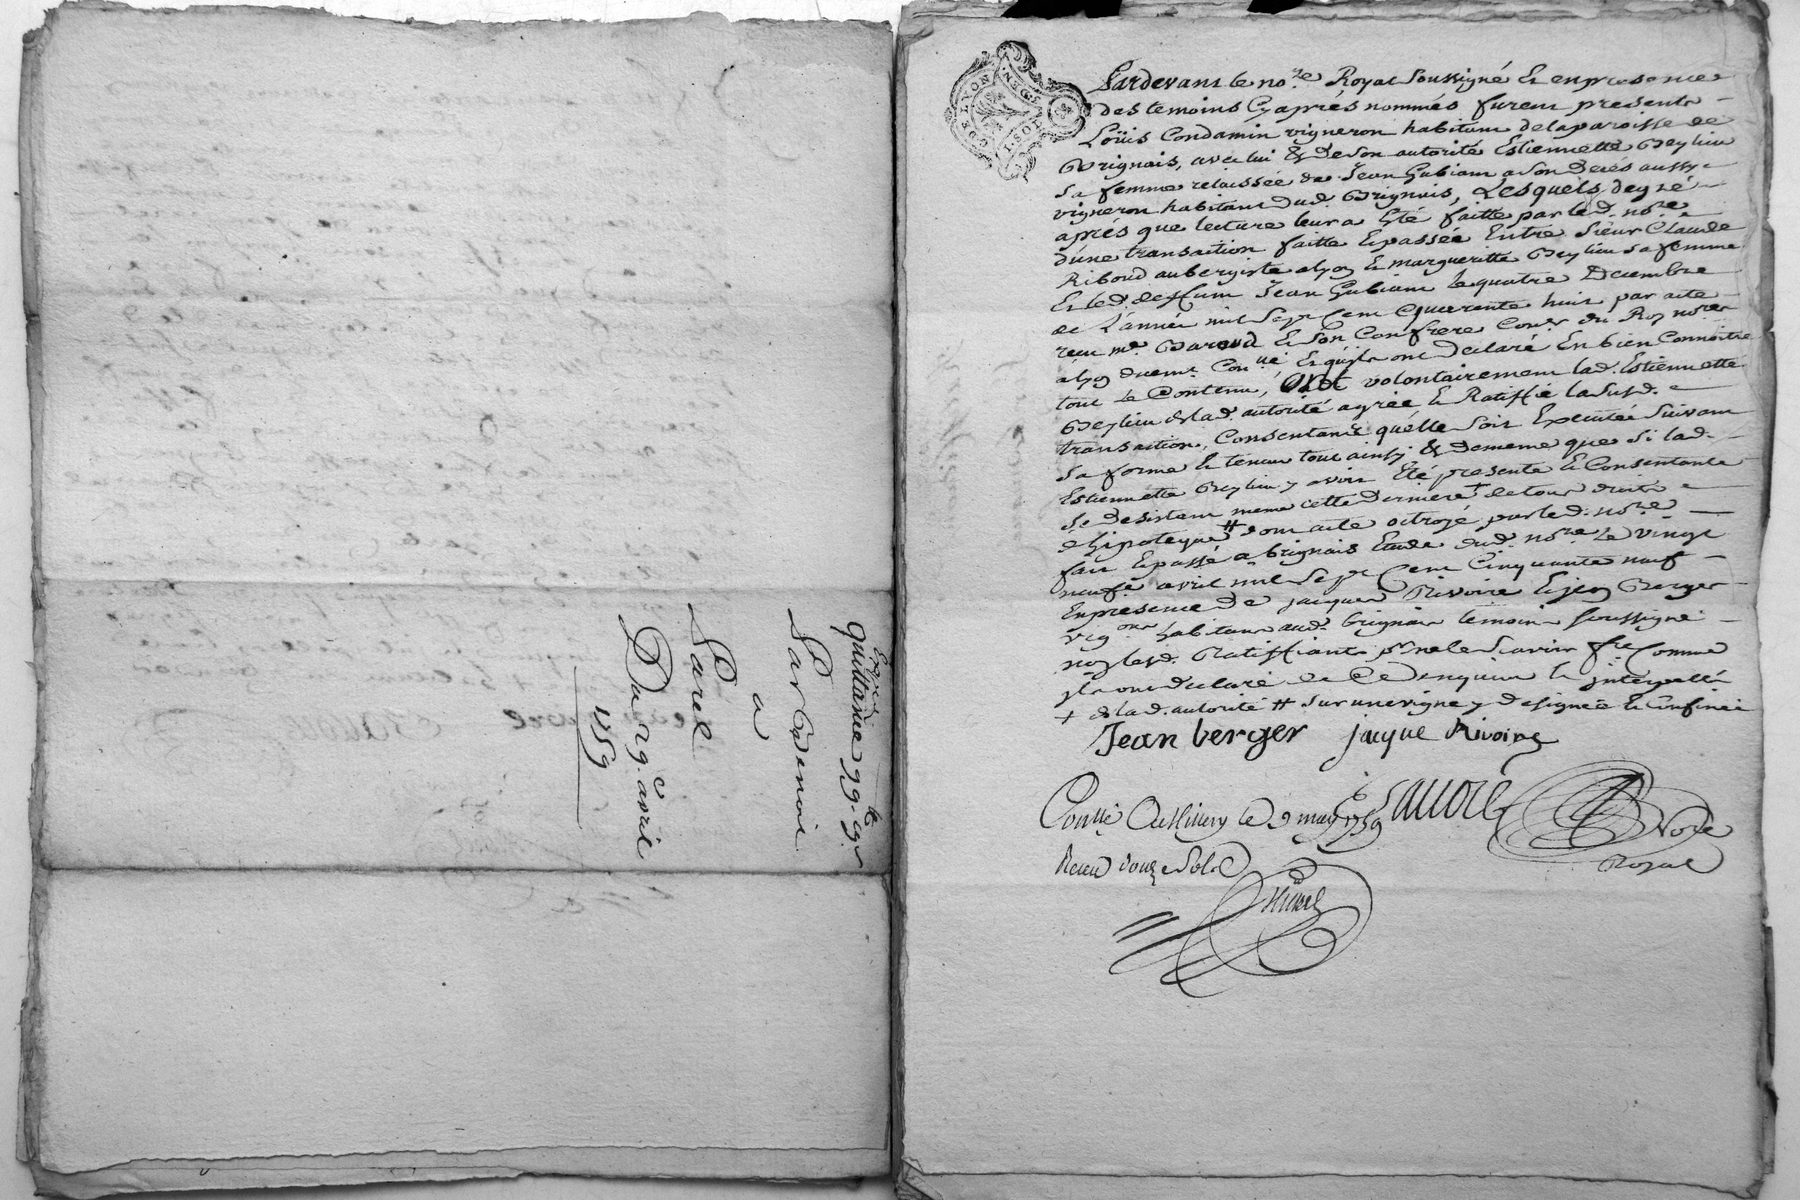 quittance 99. lt 9 s
Sardenoil
a
Sarel
Du 29.e avril
1759
GDE LYON
1 SOL
Pardevant le no.re Royal Soussigné Et en presence
des temoins Cy après nommés furent presents
Loüis Condamin vigneron habitant de la paroisse de
Brignais, avec lui & de son autorité Estiennette Beylieu
Sa femme relaissée de Jean Gubian a son Decés aussy
vigneron habitant dud. Brignais, Lesquels de gré
après que lecture leur a Eté faitte par led. no.re
d'une transaction faitte Et passée Entre Sieur Claude
Riboud aubergiste a lyon Et margueritte Beylieu sa femme
Et led. deffunt Jean Gubian le quatre Decembre
de L'année mil Sept Cent Quarente huit par acte
recu m.e Baroud Et son Confrere Con.er du Roy no.res
a lyon duemt. Con.llé Et qu'ils ont declaré En bien Connoitre
tout le Contenu, ont volontairement lad. Estiennette
Beylieu de lad. autorité agrée Et Ratiffié la Susd.
transaction, Consentant quelle Soit Executée Suivant
Sa forme Et teneur tout ainsy & de meme que Si lad.
Estiennette Beylieu y avoit Eté presente Et Consentante
Se desistant meme cette derniere + de tous droits
d'hipoteque # dont acte octroyé par led. no.re
fait Et passé a Brignais Etude dud. no.re Le vingt
neuf.e avril mil Sept Cent Cinquante neuf
En presence de jacques Rivoire Et jean Berger
vig.ons habitans aud. brignais temoins soussignés
non lesd. Ratiffiants p.r ne le Scavoir f.re Comme
ils ont declaré de Ce Enquis Et jnterpellés
+ de lad. autorité # sur une vigne y designée Et Confinée
Jean berger jacque Rivoire
Con.llé a St Himy le 9 may 1759
Recu douze Sols
Sauore No.re
Royal